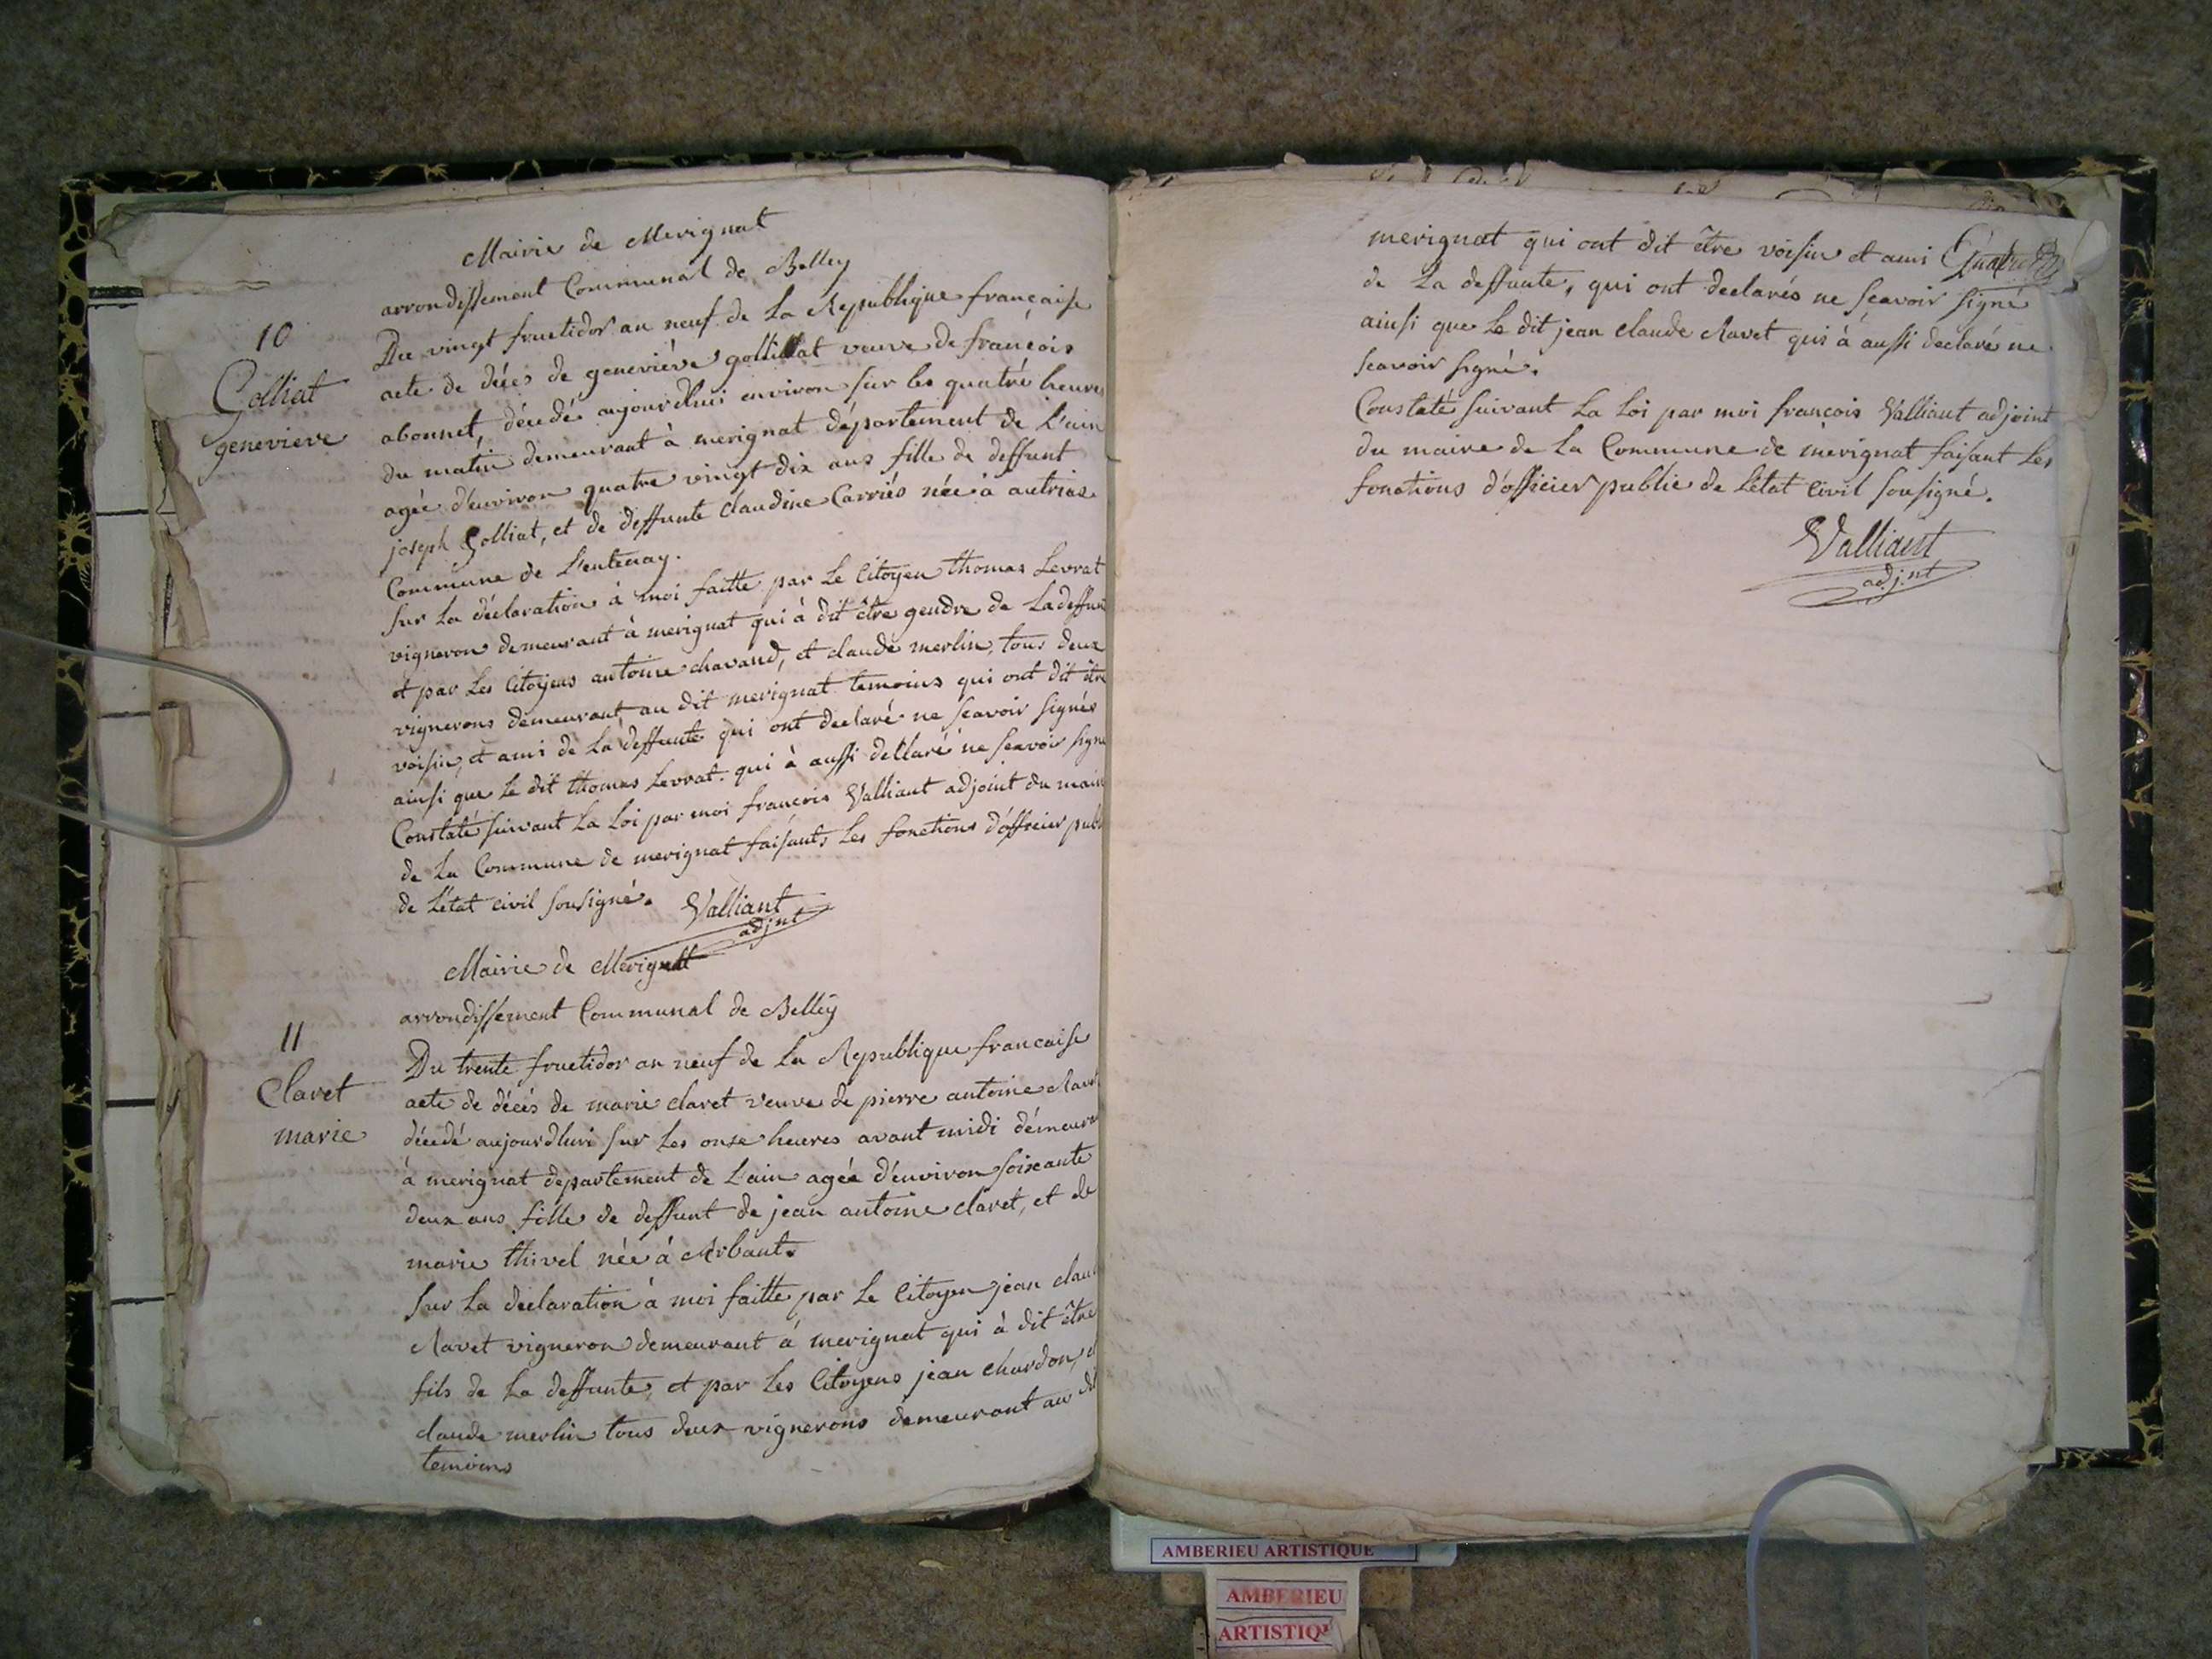 Mairie de Merignat
arrondissement Communal de Belley
10
Golliat
genevieve
Du vingt fructidor an neuf de La Republique française
acte de décés de geneviéve gollillat veuve de françois
abonnet, décédé aujourdhui environ sur les quatré heures
du matin demeurant à merignat département de L'ain
agée d'environ quatre vingt dix ans fille de deffunt
joseph Golliat, et de deffunte Claudine Carriés née à autrias
Commune de L'entenay.
Sur La déclaration à moi faitte par Le Citoyen thomas Levrat
vigneron demeurant à merignat qui à dit être gendre de La deffun
et par Les Citoyens antoine chavand, et claude merlin, tous deux
vignerons demeurant au dit merignat temoins qui ont dit être
voisin, et ami de La deffunte qui ont declaré ne scavoir signés
ainsi que Le dit thomas Levrat qui à aussi declaré ne scavoir signe
Constaté suivant La Loi par moi françois Valliant adjoint du mair
de La Commune de merignat faisants Les fonctions d'officier publ
de L'état civil sousigné. Valliant
adjnt
Mairie de Merignat
arrondissement Communal de Belley
11
Claret
marie
Du trente fructidor an neuf de La Republique francaise
acte de décés de marie claret veuve de pierre antoine Ravet
décédé aujourdhui sur Les onze heures avant midi démeuran
à merignat departement de L'ain agée d'environ soixante
deux ans fille de deffunt de jean antoine claret, et de
marie thivel née à
Sur La declaration à moi faitte par Le Citoyen jean clau
Ravet vigneron demeurant à merignat qui à dit être
fils de La deffunte, et par Les Citoyens jean chardon, et
claude merlin tous deux vignerons demeurant au dit
temoins
merignat qui ont dit être voisin et ami Quatre
de La deffunte, qui ont declarés ne scavoir signé
ainsi que Le dit jean claude Ravet qui à aussi declaré ne
scavoir signé.
Constaté suivant La Loi par moi françois Valliant adjoint
du maire de La Commune de mérignat faisant Les
fonctions d'officier public de L'état Civil sousigné.
Valliant
adjnt
AMBERIEU ARTISTIQUE
AMBERIEU
ARTISTIQU